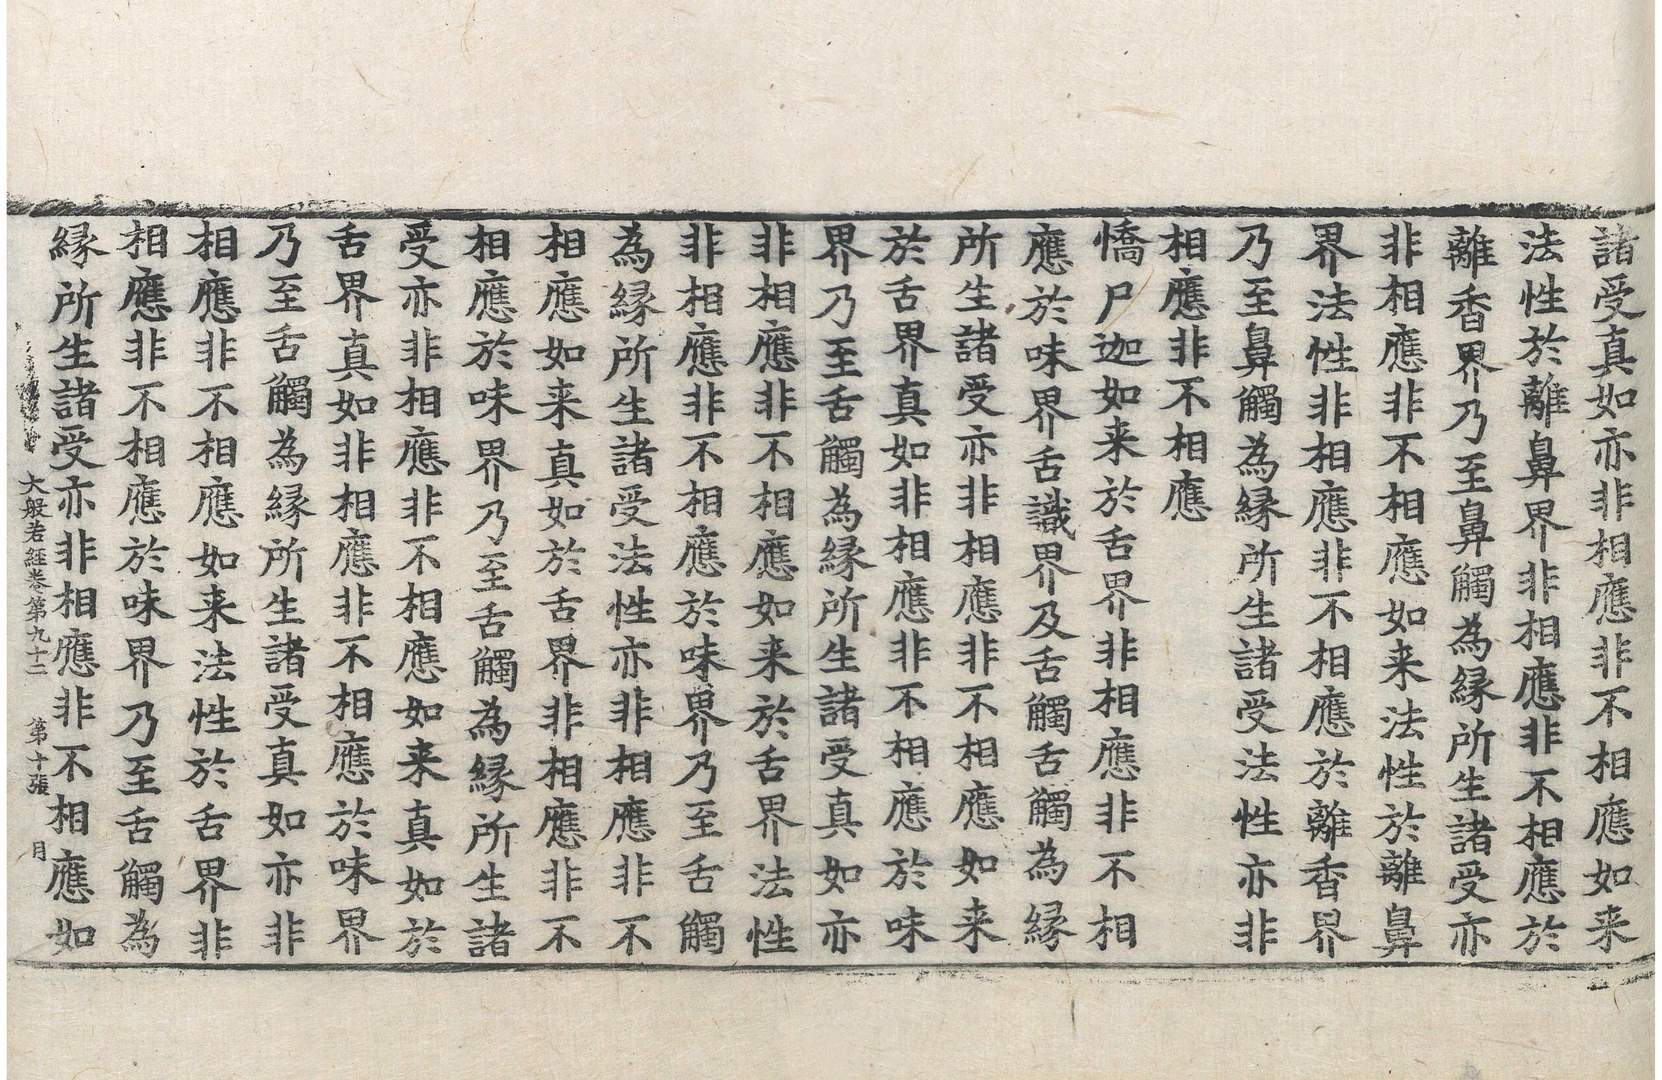 諸受真如亦非相應非不相應如来
法性於離鼻界非相應非不相應於
離香界乃至鼻觸為縁所生諸受亦
非相應非不相應如来法性於離鼻
界法性非相應非不相應於離香界
乃至鼻觸為縁所生諸受法性亦非
相應非不相應
憍尸迦如来於舌界非相應非不相
應於味界舌識界及舌觸舌觸為縁
所生諸受亦非相應非不相應如来
於舌界真如非相應非不相應於味
界乃至舌觸為縁所生諸受真如亦
非相應非不相應如来於舌界法性
非相應非不相應於味界乃至舌觸
為縁所生諸受法性亦非相應非不
相應如来真如於舌界非相應非不
相應於味界乃至舌觸為縁所生諸
受亦非相應非不相應如来真如於
舌界真如非相應非不相應於味界
乃至舌觸為縁所生諸受真如亦非
相應非不相應如来法性於舌界非
相應非不相應於味界乃至舌觸為
縁所生諸受亦非相應非不相應如
大般若經卷第九十二 第十張 月